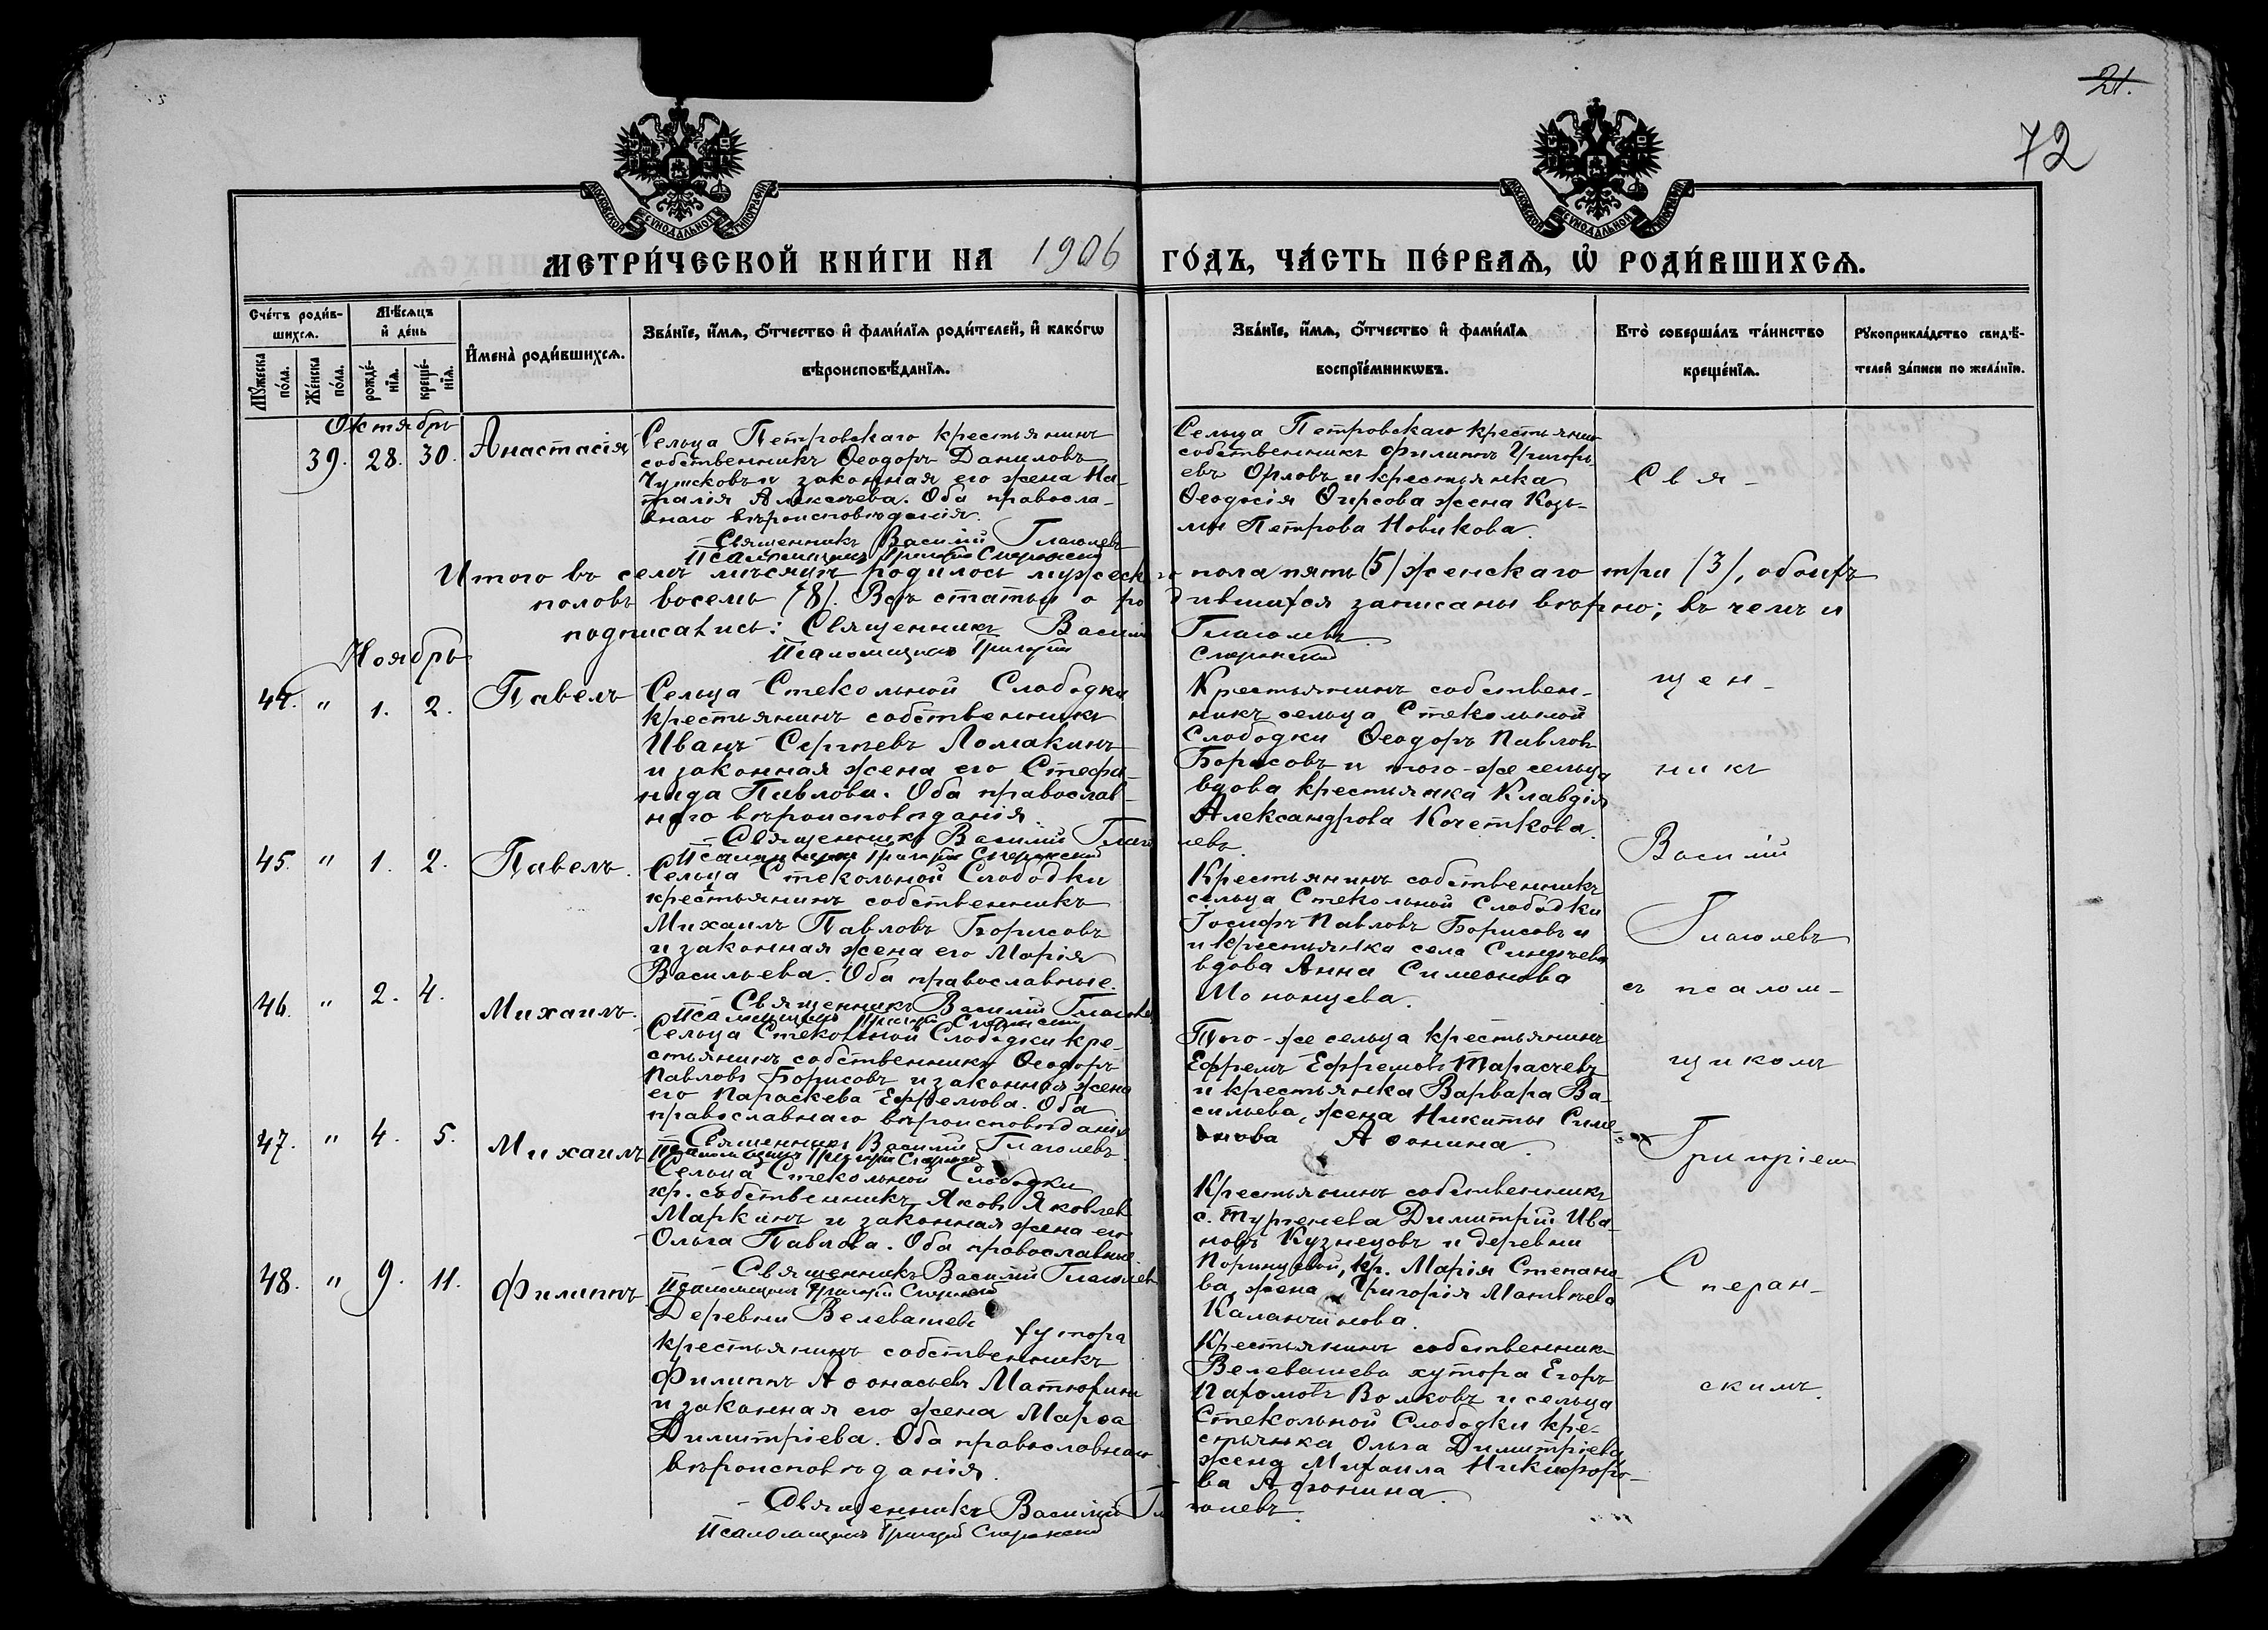 21.
72
МОСКОВСКОЙ СѴНОДАЛЬНОЙ ТИПОГРАФІИ
МОСКОВСКОЙ СѴНОДАЛЬНОЙ ТИПОГРАФІИ
МЕТРИ́ЧЕСКОЙ КНИ́ГИ НА 1906 ГО́ДЪ, ЧА́СТЬ ПЕ́РВАѦ, Ѡ҆ РОДИ́ВШИХСѦ.
Сче́тъ роди́в-
шихсѧ.
Мѣ́сѧцъ
и҆ де́нь
Мꙋжеска
по́ла.
Же́нска
по́ла.
рожде́-
нїѧ.
креще́-
нїѧ.
И҆мена̀ роди́вшихсѧ.
Зва́нїе, и҆́мѧ, ѻ҆́тчество и҆ фами́лїѧ роди́телей, и҆ како́гѡ
вѣроисповѣ́данїѧ.
Зва́нїе, и҆́мѧ, ѻ҆́тчество и҆ фами́лїѧ
воспрїе́мникѡвъ.
Кто̀ соверша́лъ та́инство
креще́нїѧ.
Рꙋкоприкла́дство свидѣ́-
телей за́писи по жела́нїю.
Октябрь
39. 28. 30. Анастасія
Сельца Петровскаго крестьянинъ
собственникъ Ѳеодоръ Даниловъ
Чушковъ и законная его жена На-
талія Алексѣева. Оба правосла-
внаго вѣроисповѣданія.
Священникъ Василій Глаголевъ
Псаломщикъ Григорій Сперанскій
Сельца Петровскаго крестьянинъ
собственникъ Филиппъ Григорь-
евъ Орловъ и крестьянка
Ѳеодосія Ѳирсова жена Козь-
мы Петрова Новикова.
Итого въ семъ мѣсяцѣ родилось мужескаго пола пять (5) женскаго три (3), обоихъ
половъ восемь (8). Всѣ статьи о родившихся записаны вѣрно; въ чемъ и
подписались: Священникъ Василій Глаголевъ
Псаломщикъ Григорій Сперанскій
Ноябрь
44. " 1. 2. Павелъ
Сельца Стекольной Слободки
крестьянинъ собственникъ
Иванъ Сергѣевъ Ломакинъ
и законная жена его Стефа-
нида Павлова. Оба православ-
наго вѣроисповѣданія.
Священникъ Василій Глаголевъ
Псаломщикъ Григорій Сперанскій
Крестьянинъ собствен-
никъ сельца Стекольной
Слободки Ѳеодоръ Павловъ
Борисовъ и того-же сельца
вдова крестьянка Клавдія
Александрова Кочеткова.
45. " 1. 2. Павелъ.
Сельца Стекольной Слободки
крестьянинъ собственникъ
Михаилъ Павловъ Борисовъ
и законная жена его Марія
Васильева. Оба православные.
Священникъ Василій Глаголевъ
Псаломщикъ Григорій Сперанскій
Крестьянинъ собственникъ
сельца Стекольной Слободки
Іосифъ Павловъ Борисовъ и
и крестьянка села
вдова Анна Симеонова
46. " 2. 4. Михаилъ.
Сельца Стекольной Слободки кре-
стьянинъ собственникъ Ѳеодоръ
Павловъ Борисовъ и законная жена
его Параскева Ефремова. Оба
православнаго вѣроисповѣданія
Священникъ Василій Глаголевъ.
Псаломщикъ Григорій Сперанскій
Того-же сельца крестьянинъ
Ефремъ Ефремовъ Тарасчевъ
и крестьянка Варвара Ва-
сильева, жена Никиты Симе-
онова Аѳонина.
47. " 4. 5. Михаилъ
Сельца Стекольной Слободки
кр. собственникъ Яковъ Яковлевъ
Маркинъ и законная жена его
Ольга Павлова. Оба православные.
Священникъ Василій Глаголевъ
Псаломщикъ Григорій Сперанскій
Крестьянинъ собственникъ
с. Тургенева Димитрій Ива-
новъ Кузнецовъ и деревни
кр. Марія Степано-
ва, жена Григорія Матвѣева
48. " 9. 11. Филиппъ
Деревни Велевашева хутора
крестьянинъ собственникъ
Филиппъ Аѳонасьевъ Матюхинъ
и законная его жена Марѳа
Димитріева. Оба православнаго
вѣроисповѣданія.
Священникъ Василій Глаголевъ.
Псаломщикъ Григорій Сперанскій
Крестьянинъ собственникъ
Велевашева хутора Егоръ
Пахомовъ Волковъ и сельца
Стекольной Слободки кре-
стьянка Ольга Димитріева
жена Михаила Никифоро-
ва Афонина.
Свя-
щен-
никъ
Василій
Глаголевъ
съ псалом-
щикомъ
Григоріемъ
Сперан-
скимъ.